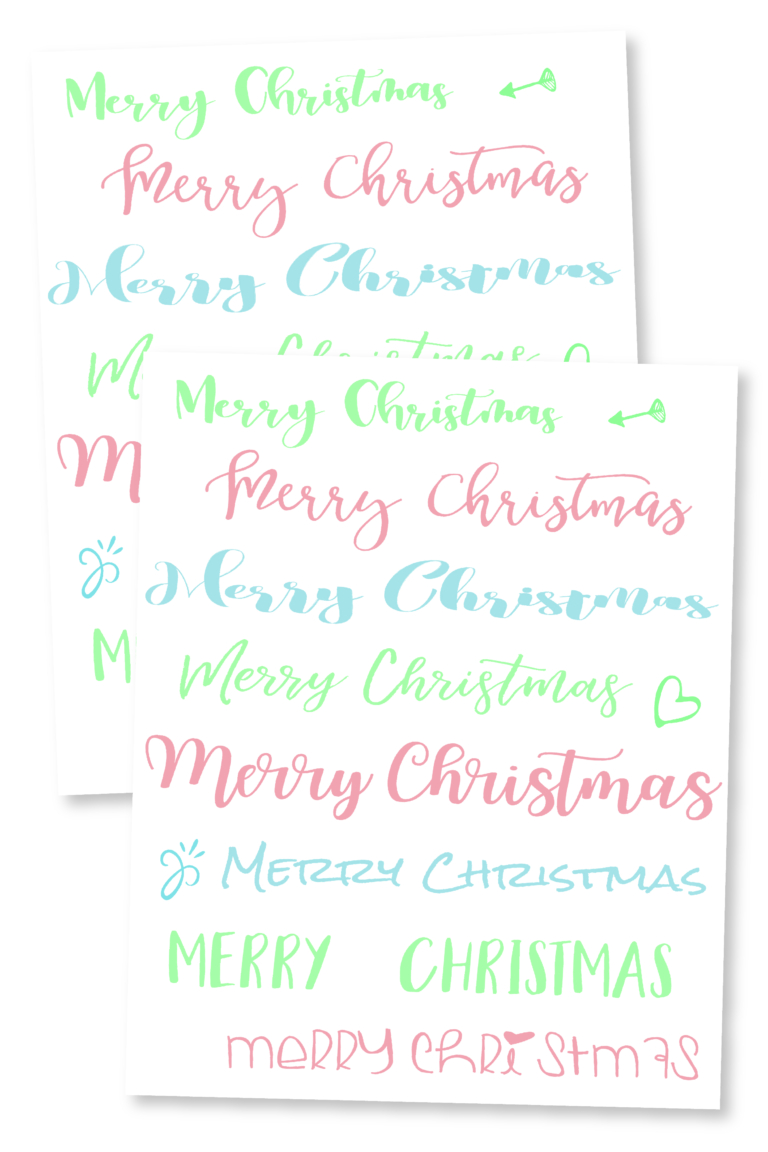 Merry Christmas
Merry Christmas
Merry Christmas
M Christmas
M
M
Merry Christmas
Merry Christmas
Merry Christmas
Merry Christmas
Merry Christmas
MERRY CHRISTMAS
MERRY CHRISTMAS
meRRY chRiStmas